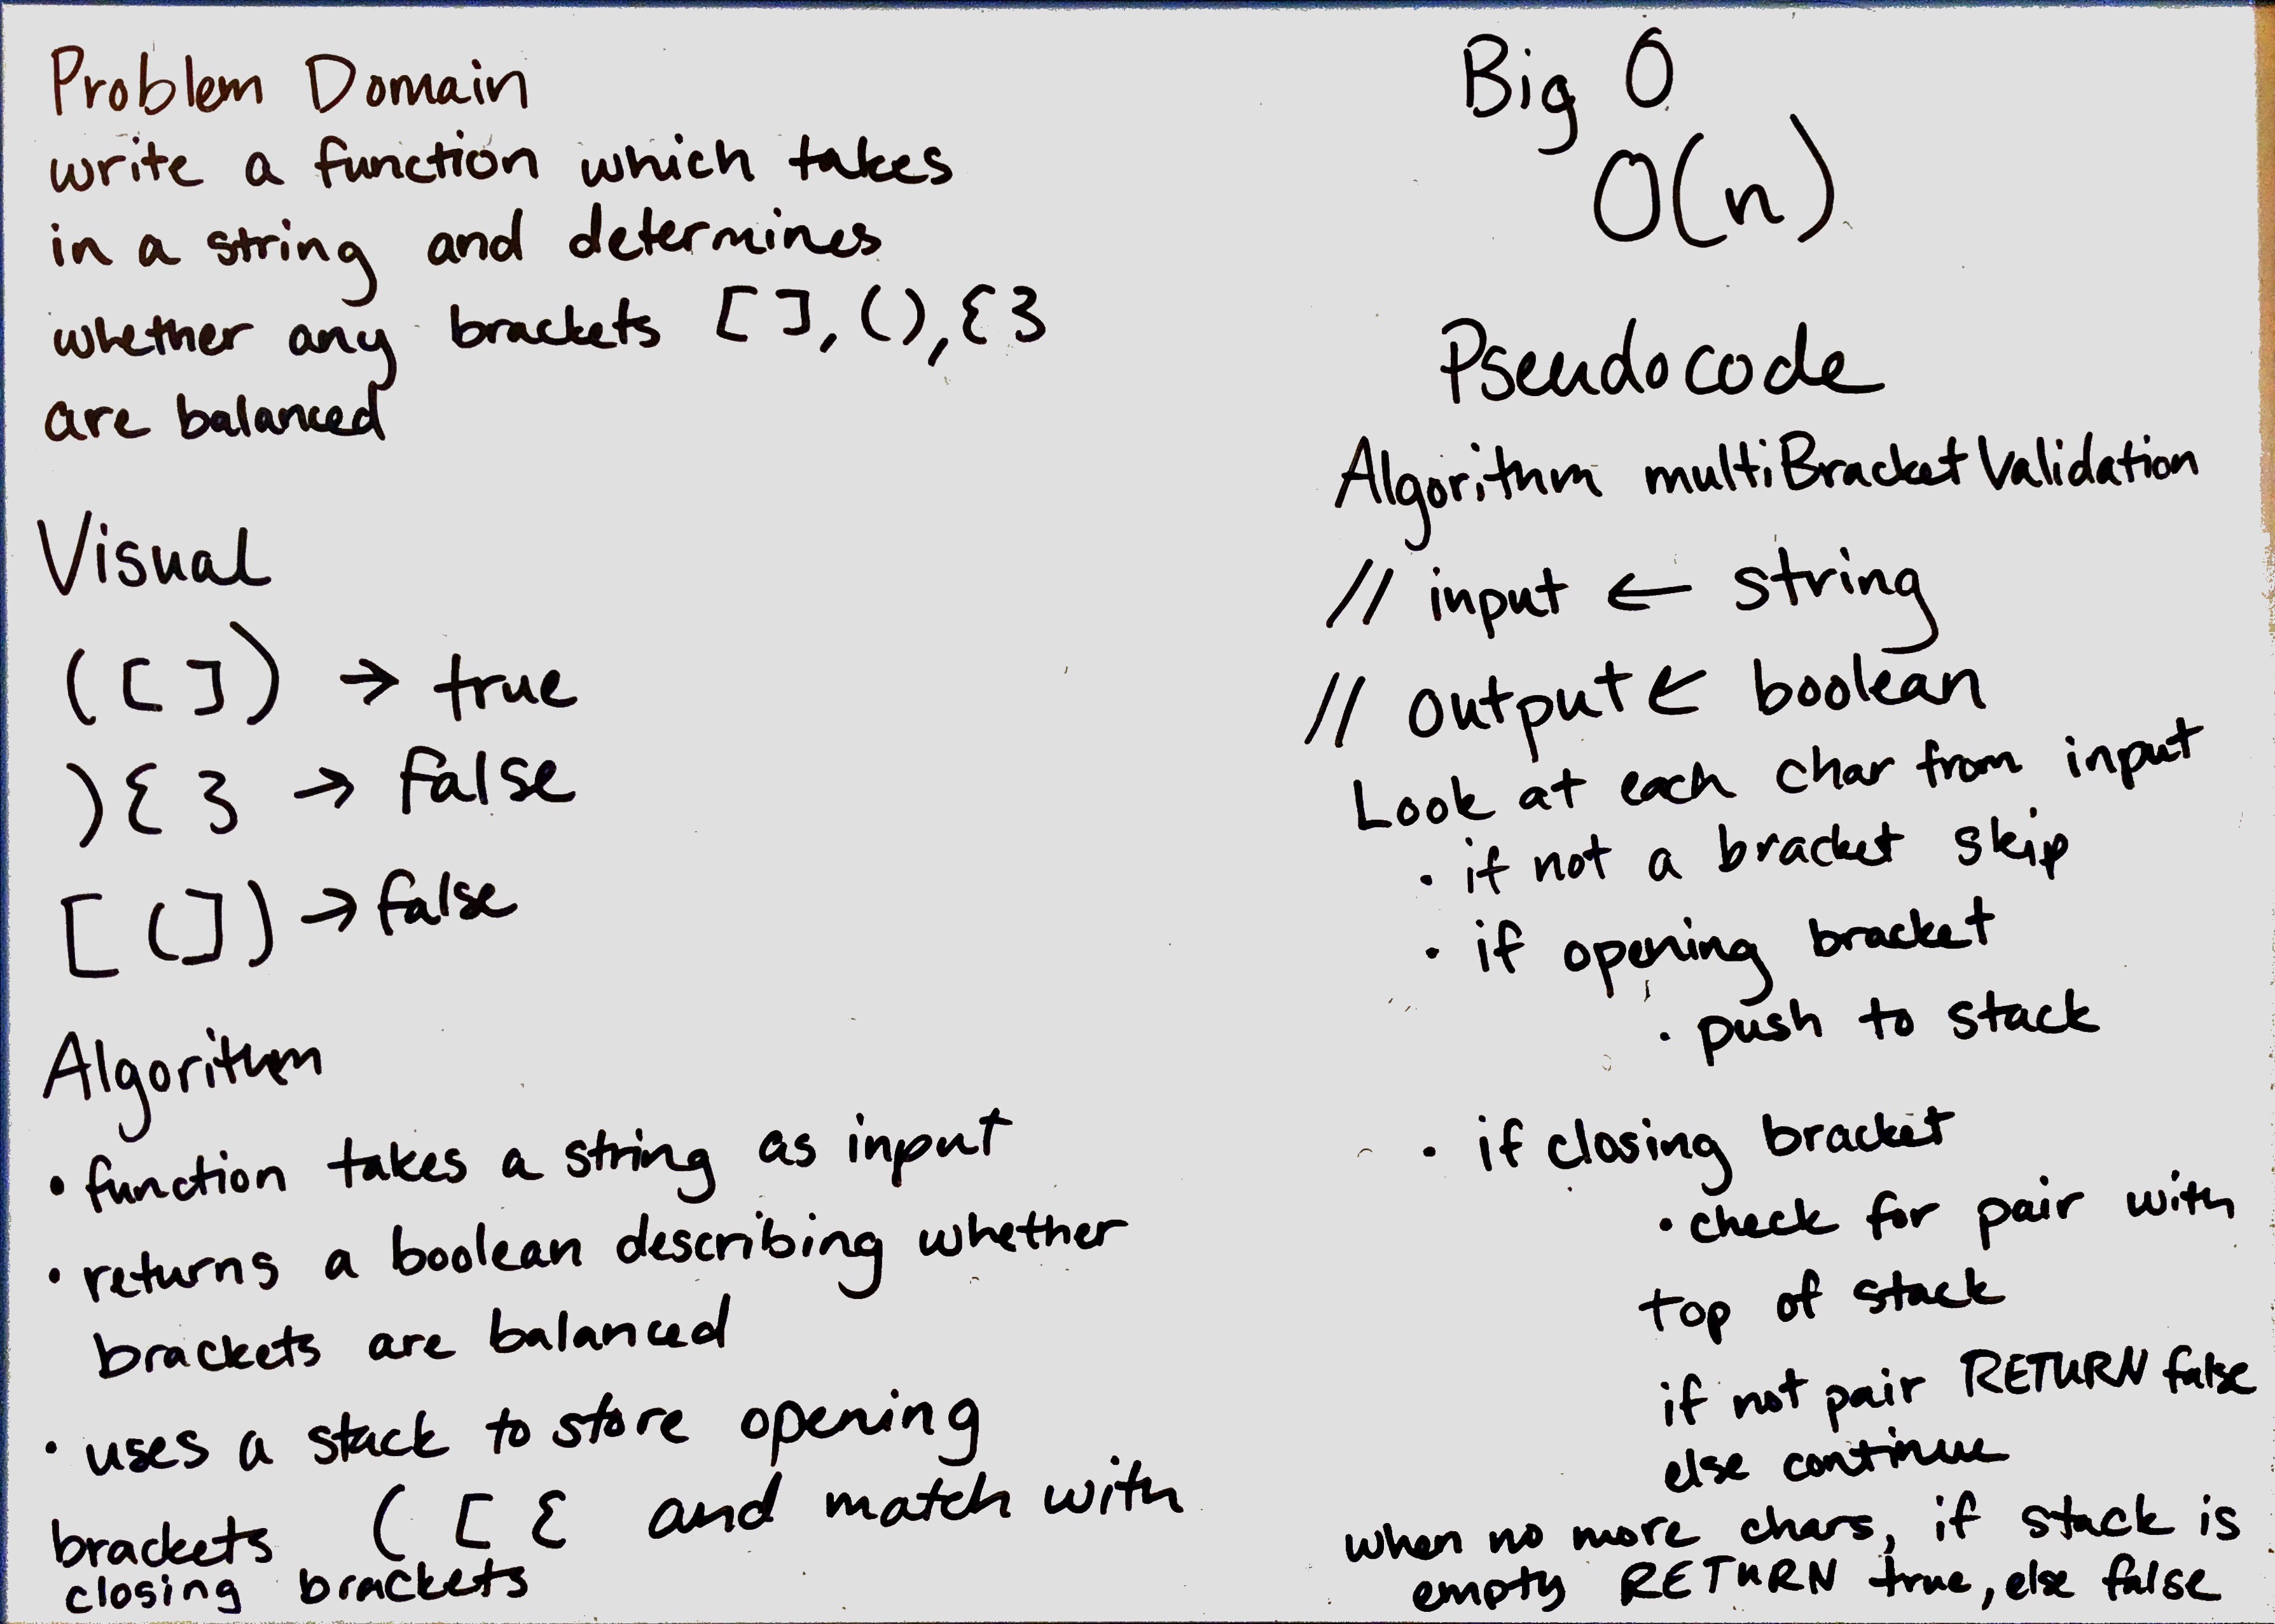 Problem Domain
write a function which takes
in a string and determines
whether any brackets [ ], ( ), { }
are balanced
Visual
( [ ] ) → true
) { } → false
[ ( ] ) → false
Algorithm
• function takes a string as input
• returns a boolean describing whether
brackets are balanced
• uses a stack to store opening
brackets ( [ { and match with
closing brackets
Big O
O(n)
Pseudocode
Algorithm multiBracketValidation
// input ← string
// output ← boolean
Look at each char from input
• if not a bracket skip
• if opening bracket
• push to stack
• if closing bracket
• check for pair with
top of stack
if not pair RETURN false
else continue
when no more chars, if stack is
empty RETURN true, else false